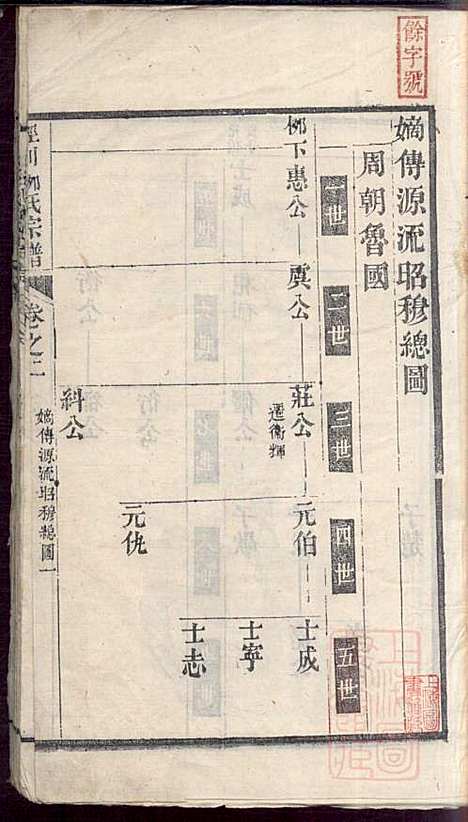 餘字號
嫡傳源流昭穆總圖
周朝魯國
一世
二世
三世
四世
五世
柳下惠公
虞公
莊公
遷衛輝
元伯
士成
士寧
元仇
士志
糾公
柳氏宗譜
卷之二
嫡傳源流昭穆總圖一